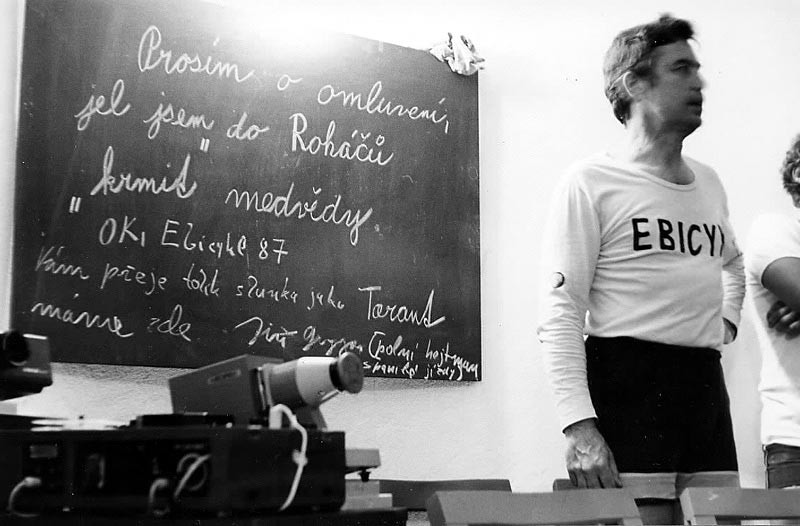 Prosím o omluvení,
jel jsem do Roháčů
"krmit" medvědy.
OK, Ebicykl 87
Vám přeje tolik slunka jako Tarant
máme zde Jiří (polní hejtman
španělské jízdy)
EBICY